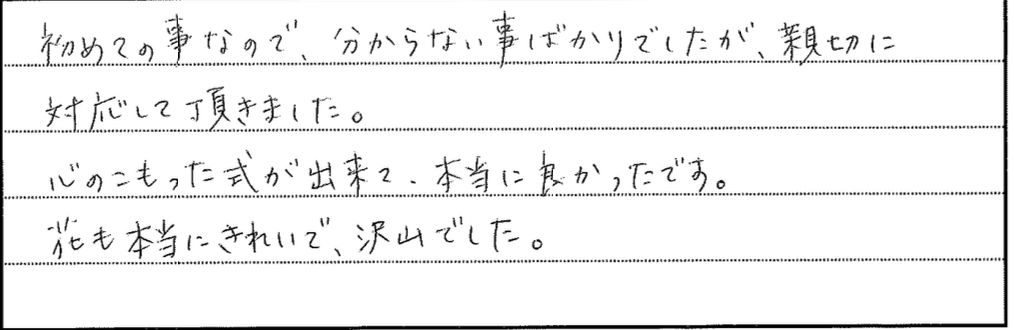 初めての事なので、分からない事ばかりでしたが、親切に
対応して頂きました。
心のこもった式が出来て、本当に良かったです。
花も本当にきれいで、沢山でした。